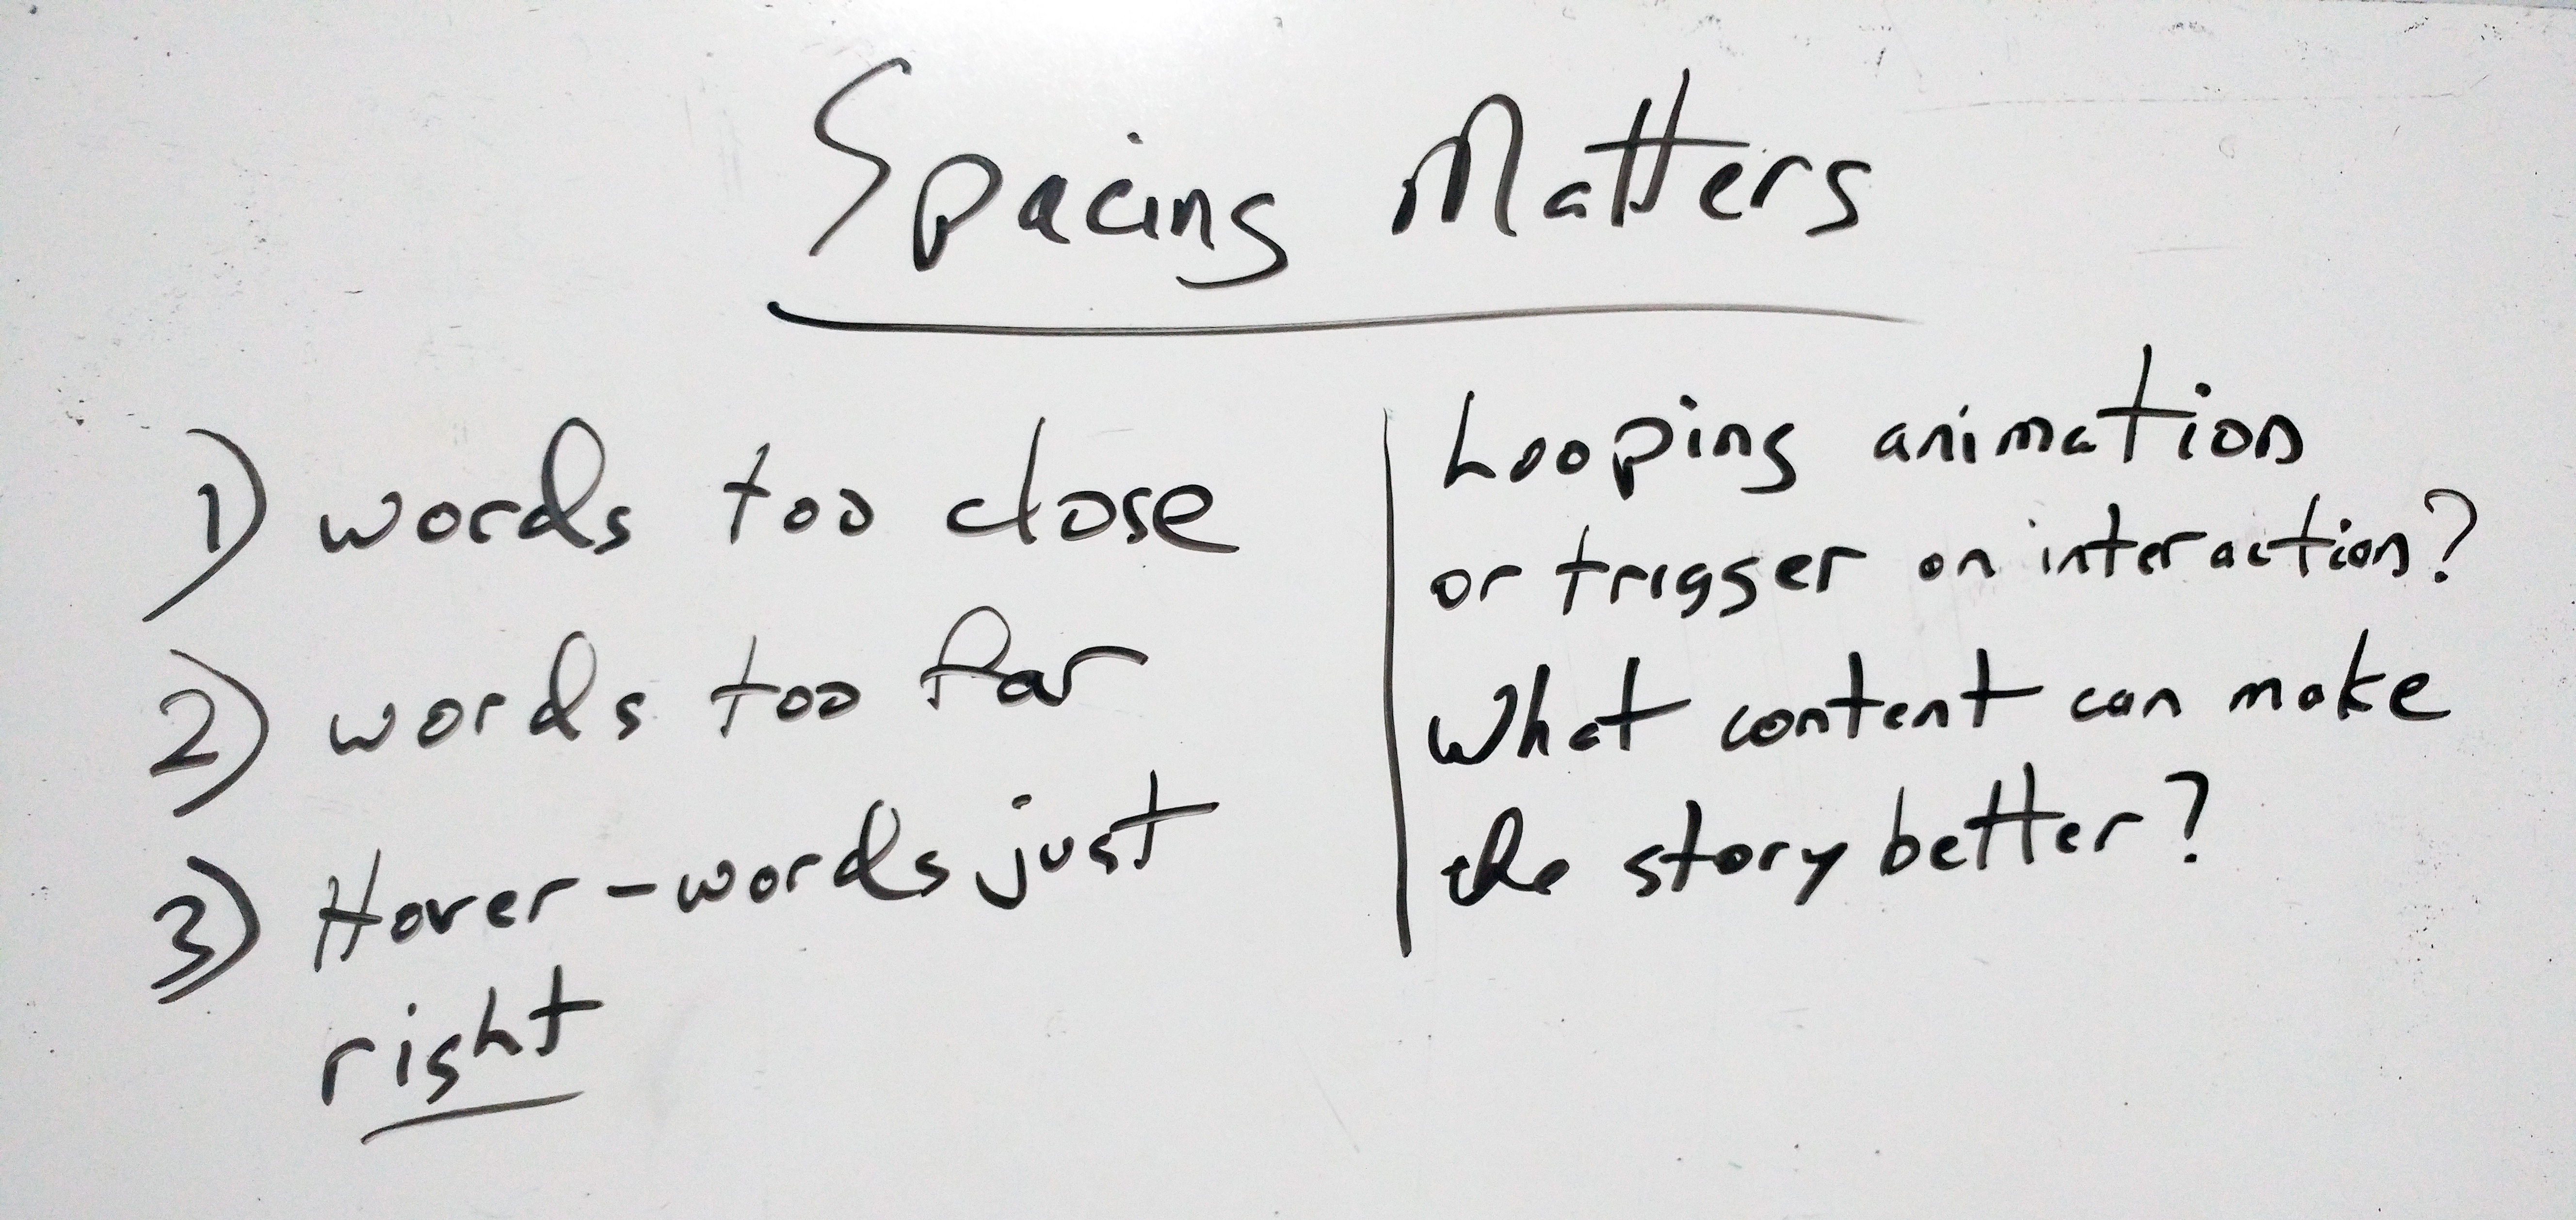 Spacing Matters
1) words too close
2) words too far
3) Hover - words just
right
Looping animation
or trigger on interaction?
What content can make
the story better?